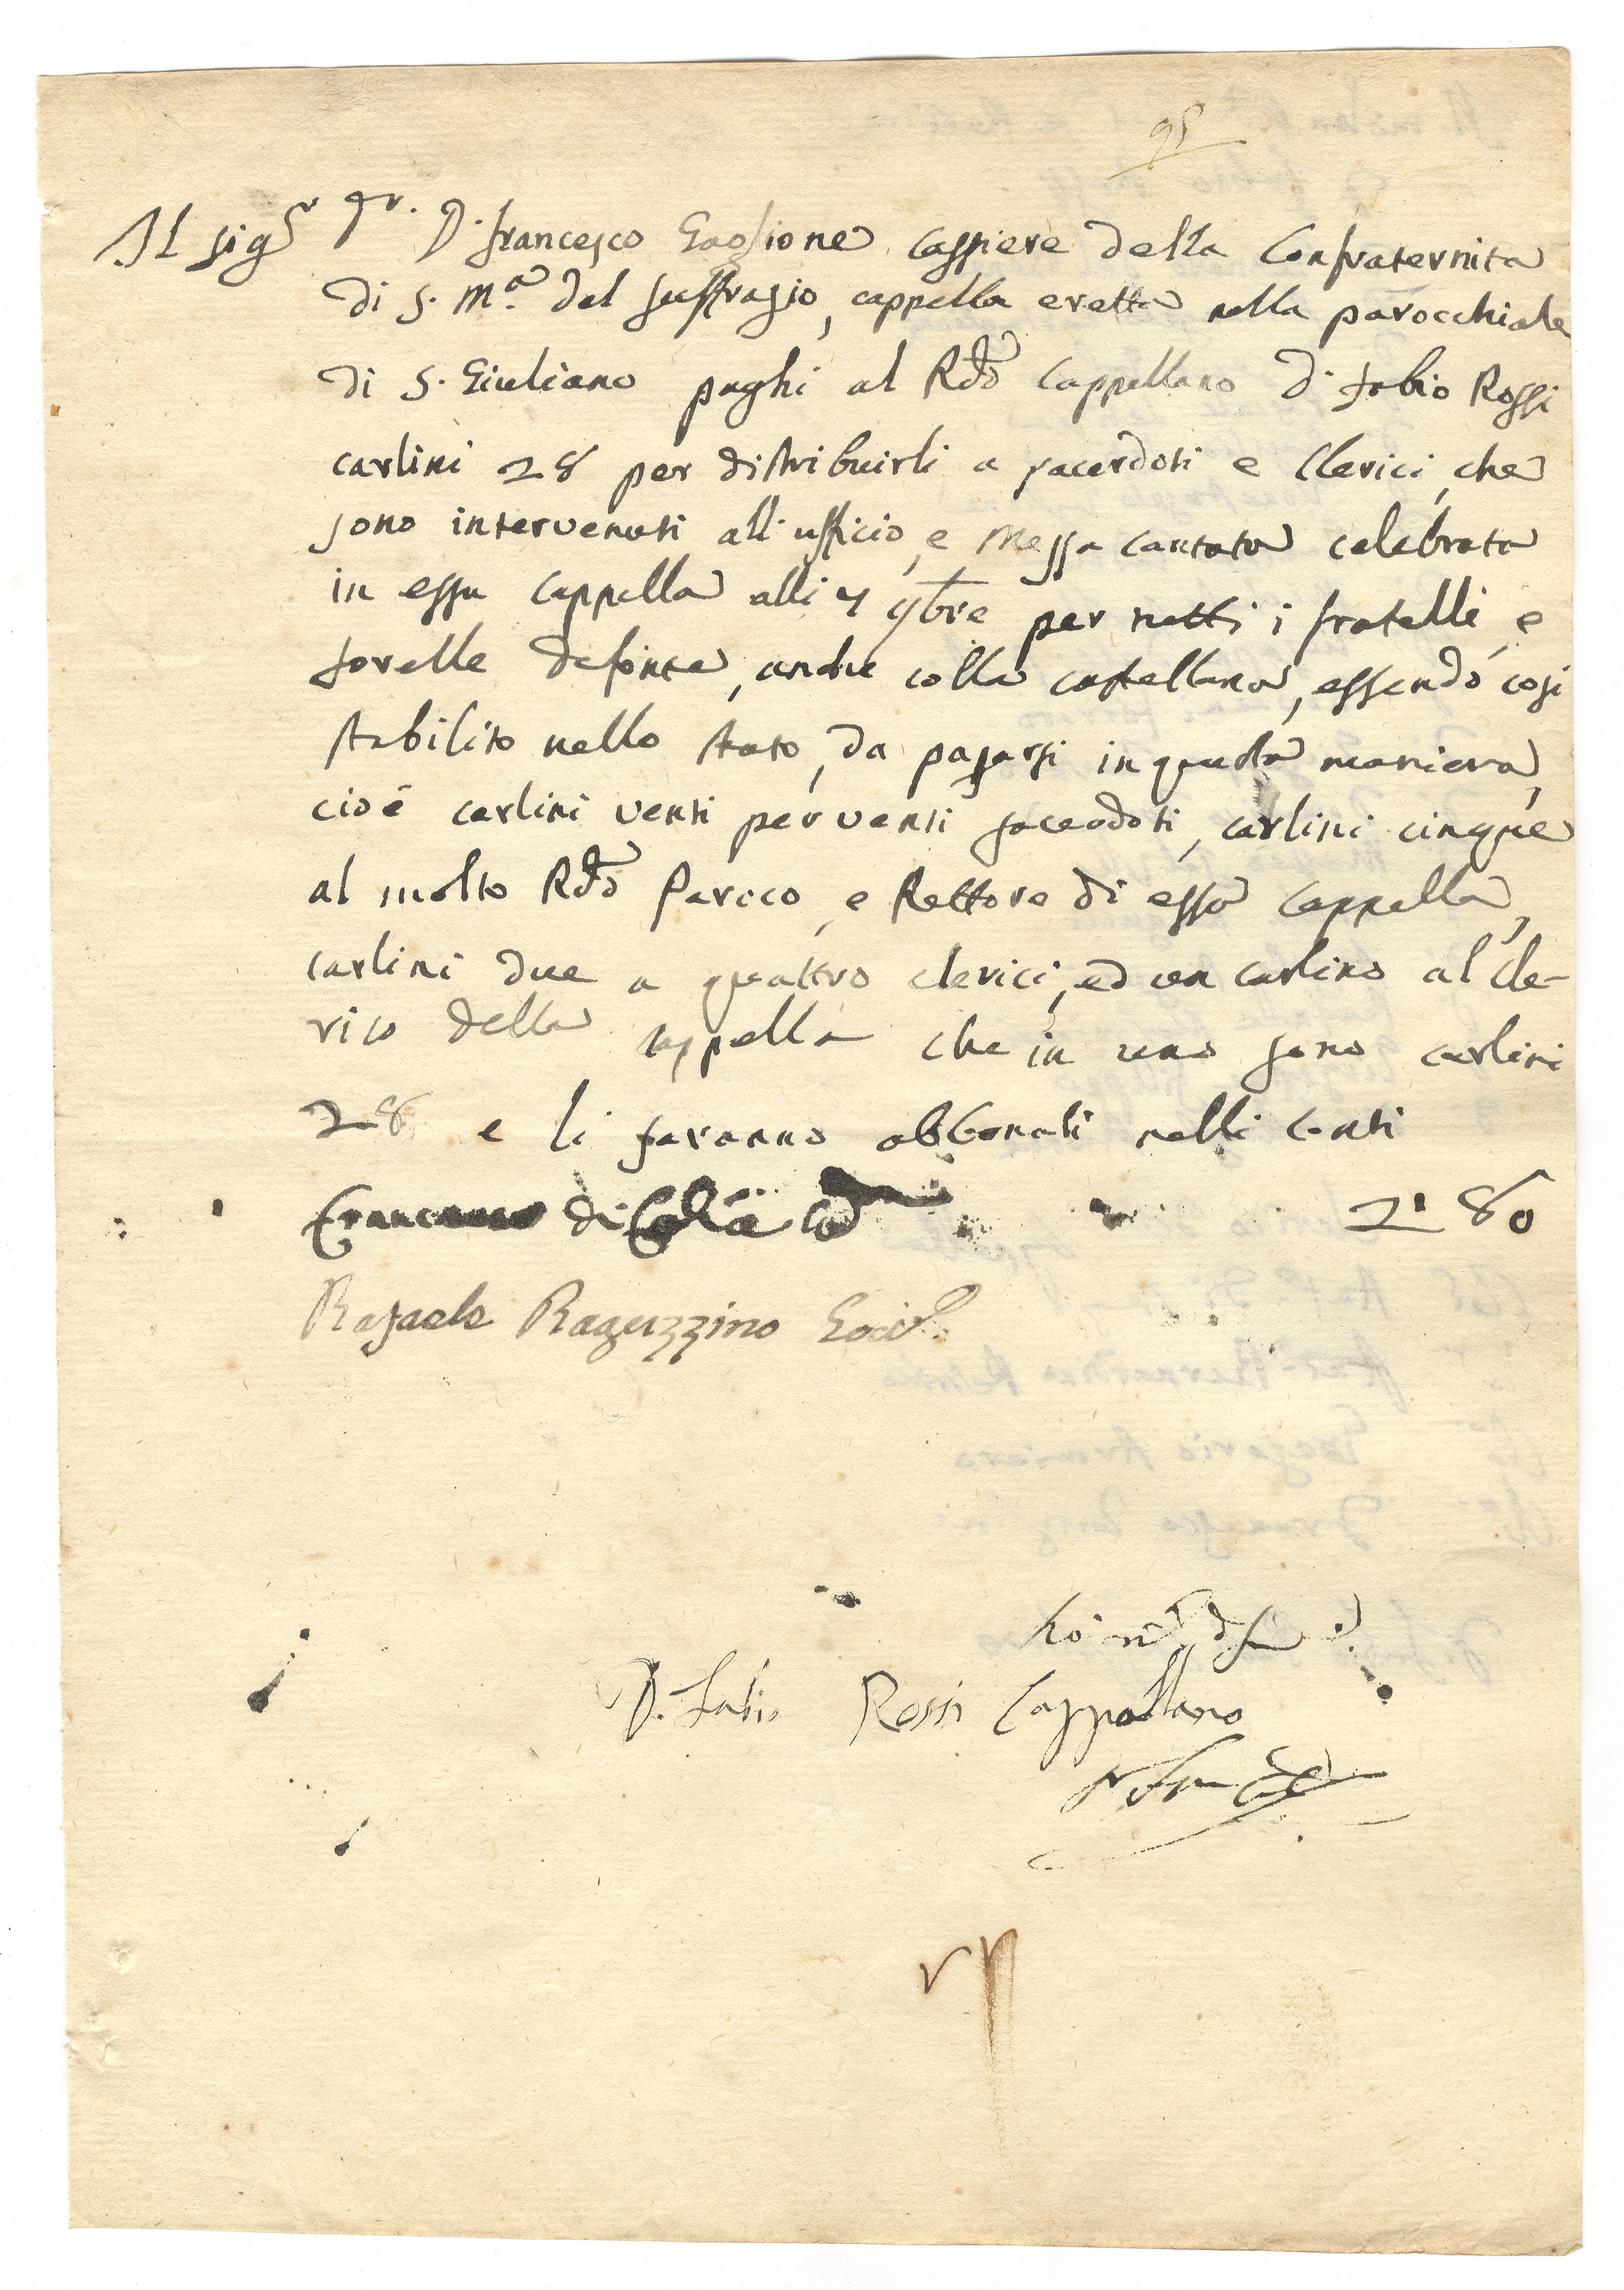 95
Il sig.r D.r D. Francesco Gaglione cassiere della Confraternita
di S. M.a del suffragio, cappella eretta nella parocchiale
di S. Giuliano paghi al Rdo Cappellano D. Fabio Rossi
carlini 28 per distribuirli a sacerdoti e Clerici, che
sono intervenuti all'ufficio, e Messa cantata celebrata
in essa Cappella alli 4 9bre per tutti i fratelli, e
sorelle defonte, anche colla castellana, essendo cosi
stabilito nello stato, da pagarsi in questa maniera,
cioè carlini venti per venti sacerdoti, carlini cinque
al molto Rdo Paroco, e Rettore di essa Cappella,
carlini due a quattro clerici, ed un carlino al cle-
rico della cappella che in uno sono carlini
28 e li saranno abbonati nelli conti
Francesco di 2. 80
Rafaele Raguzzino
D. Fabio Rossi Cappellano